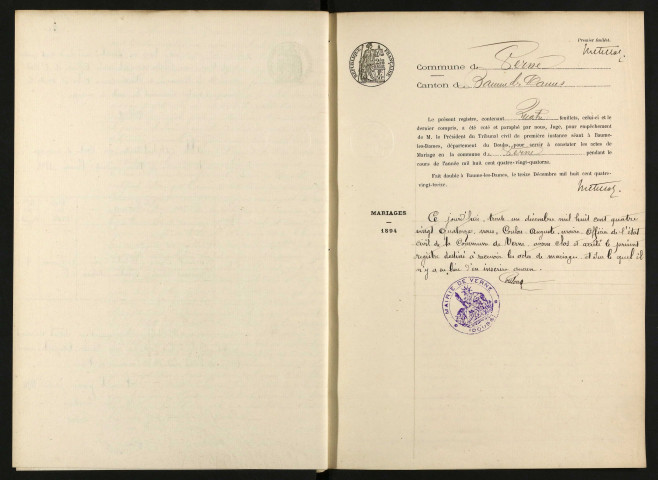 Premier feuillet.
Commune de Verne
Canton de Baume les Dames
RÉPUBLIQUE FRANÇAISE
Le présent registre, contenant quatre feuillets, celui-ci et le
dernier compris, a été coté et paraphé par nous, Juge, pour empêchement
de M. le Président du Tribunal civil de première instance séant à Baume-
les-Dames, département du Doubs, pour servir à constater les actes de
Mariage en la commune de Verne pendant le
cours de l'année mil huit cent quatre-vingt-quatorze.
Fait double à Baume-les-Dames, le treize Décembre mil huit cent quatre-
vingt-treize.
MARIAGES
1894
Ce jourd'hui trente un décembre mil huit cent quatre
vingt Quatorze, nous, Auguste, maire, Officier de l'état
civil de la Commune de Verne, avons clos et arrêté le présent
registre destiné à recevoir les actes de mariages et sur lequel il
n'y a eu lieu d'en inscrire aucun.
MAIRIE DE VERNE
(DOUBS)